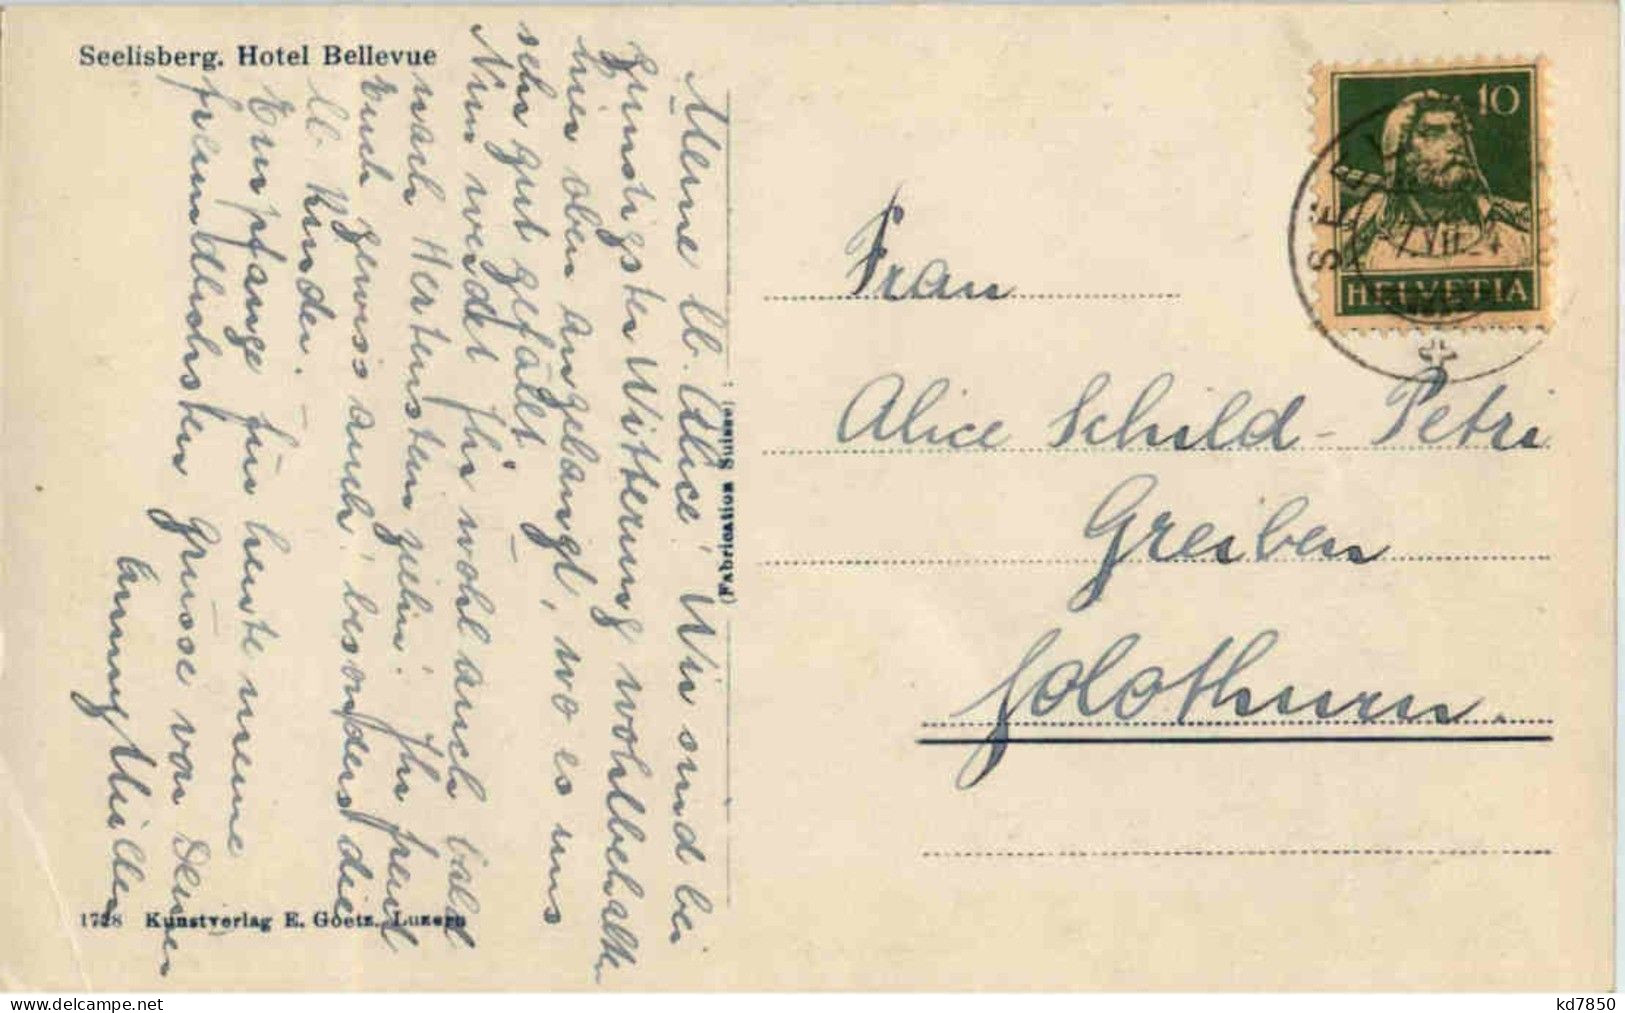 Seelisberg. Hotel Bellevue
Meine lb. Alice! Wir sind bei
günstigster Witterung wohlbehalt
hier oben angelangt, wo es uns
sehr gut gefällt.
Nun werdet Ihr wohl auch bald
nach Hertenstein ziehn! Ihr freut
Euch gewiss auch! besonders die
lb. Kinder.
Empfange für heute meine
freundlichsten Grüsse von Deiner
Anny Müller
(Fabrication Suisse)
1728 Kunstverlag E. Goetz, Luzern
10
HELVETIA
Frau
Alice Schild-Petri
Greiben
Solothurn.
kd7850